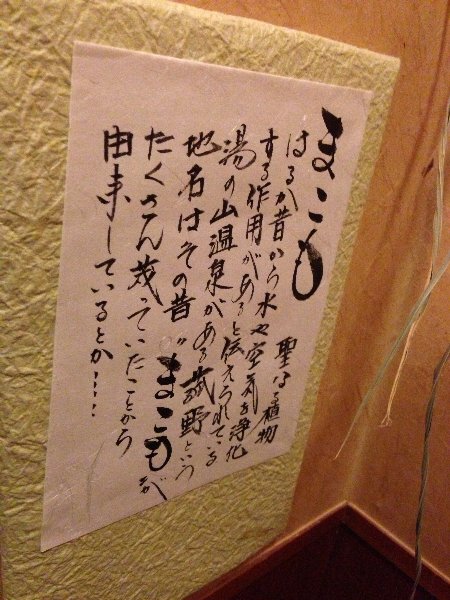 まこも
聖なる植物
はるか昔から水や空気を浄化
する作用があると伝えられている
湯の山温泉がある菰野という
地名はその昔〝まこもが
たくさん茂っていたことから
由来しているとか……